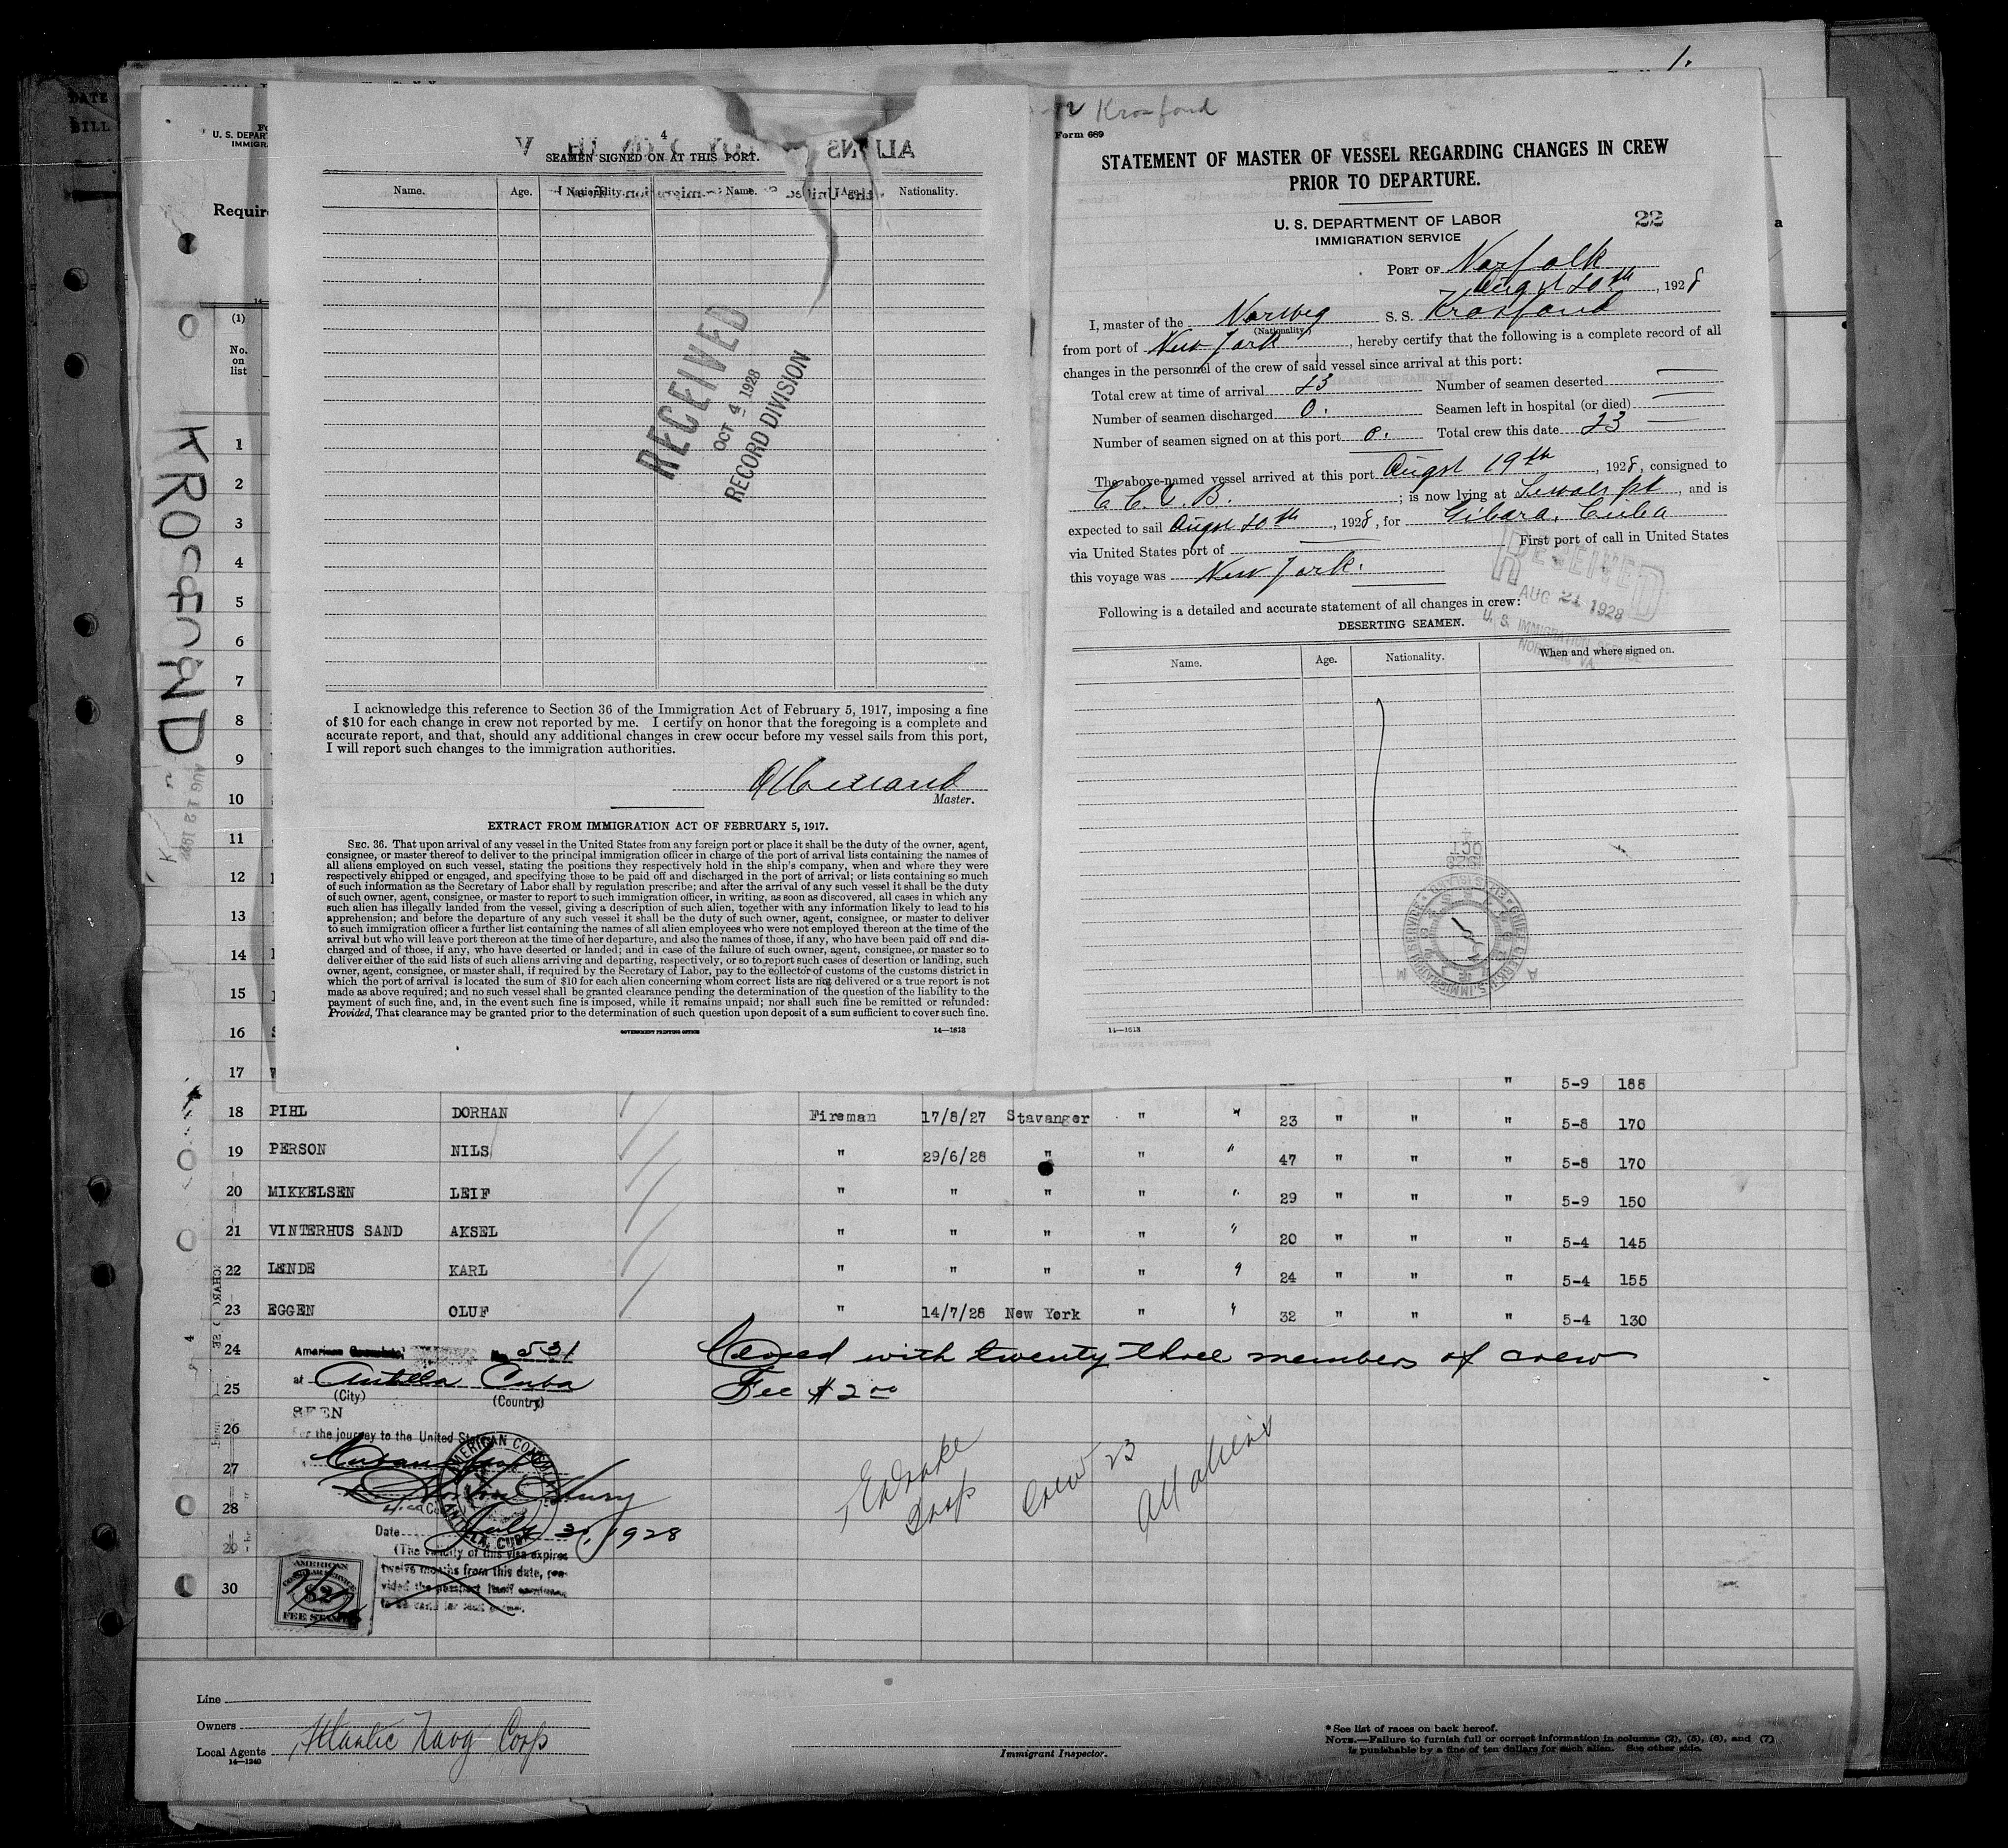 1.
DATE
BILL
U. S. DEPAR
IMMIGR
Requir
a
(1)
No.
on
list
KROSFOND
AUG 12
4
SEAMEN SIGNED ON AT THIS PORT.
Name. Age. Nationality. Name. Age. Nationality.
RECEIVED
OCT 4 1928
RECORD DIVISION
I acknowledge this reference to Section 36 of the Immigration Act of February 5, 1917, imposing a fine
of $10 for each change in crew not reported by me. I certify on honor that the foregoing is a complete and
accurate report, and that, should any additional changes in crew occur before my vessel sails from this port,
I will report such changes to the immigration authorities.
Master.
EXTRACT FROM IMMIGRATION ACT OF FEBRUARY 5, 1917.
SEC. 36. That upon arrival of any vessel in the United States from any foreign port or place it shall be the duty of the owner, agent,
consignee, or master thereof to deliver to the principal immigration officer in charge of the port of arrival lists containing the names of
all aliens employed on such vessel, stating the positions they respectively hold in the ship's company, when and where they were
respectively shipped or engaged, and specifying those to be paid off and discharged in the port of arrival; or lists containing so much
of such information as the Secretary of Labor shall by regulation prescribe; and after the arrival of any such vessel it shall be the duty
of such owner, agent, consignee, or master to report to such immigration officer, in writing, as soon as discovered, all cases in which any
such alien has illegally landed from the vessel, giving a description of such alien, together with any information likely to lead to his
apprehension; and before the departure of any such vessel it shall be the duty of such owner, agent, consignee, or master to deliver
to such immigration officer a further list containing the names of all alien employees who were not employed thereon at the time of the
arrival but who will leave port thereon at the time of her departure, and also the names of those, if any, who have been paid off and dis-
charged and of those, if any, who have deserted or landed; and in case of the failure of such owner, agent, consignee, or master so to
deliver either of the said lists of such aliens arriving and departing, respectively, or so to report such cases of desertion or landing, such
owner, agent, consignee, or master shall, if required by the Secretary of Labor, pay to the collector of customs of the customs district in
which the port of arrival is located the sum of $10 for each alien concerning whom correct lists are not delivered or a true report is not
made as above required; and no such vessel shall be granted clearance pending the determination of the question of the liability to the
payment of such fine, and, in the event such fine is imposed, while it remains unpaid; nor shall such fine be remitted or refunded:
Provided, That clearance may be granted prior to the determination of such question upon deposit of a sum sufficient to cover such fine.
GOVERNMENT PRINTING OFFICE 14—1613
Krosfond
Form 689
STATEMENT OF MASTER OF VESSEL REGARDING CHANGES IN CREW
PRIOR TO DEPARTURE.
U. S. DEPARTMENT OF LABOR
IMMIGRATION SERVICE
22
PORT OF Norfolk
Augst 20th, 1928
I, master of the Norweg S. S. Krosfond
(Nationality)
from port of New York, hereby certify that the following is a complete record of all
changes in the personnel of the crew of said vessel since arrival at this port:
Total crew at time of arrival 23 Number of seamen deserted —
Number of seamen discharged 0. Seamen left in hospital (or died) —
Number of seamen signed on at this port 0. Total crew this date 23
The above-named vessel arrived at this port Augst 19th, 1928, consigned to
C. C. C. B.; is now lying at Sewals pt, and is
expected to sail Augst 20th, 1928, for Gibara, Cuba
via United States port of — First port of call in United States
this voyage was New York.
RECEIVED
AUG 21 1928
U. S. IMMIGRATION SERVICE
NORFOLK, VA
Following is a detailed and accurate statement of all changes in crew:
DESERTING SEAMEN.
Name. Age. Nationality. When and where signed on.
14—1613
1
2
3
4
5
6
7
8
9
10
11
12
13
14
15
16
17 " 5-9 188
18 PIHL DORHAN Fireman 17/8/27 Stavanger " " 23 " " " 5-8 170
19 PERSON NILS " 29/6/28 " " " 47 " " " 5-8 170
20 MIKKELSEN LEIF " " " " " 29 " " " 5-9 150
21 VINTERHUS SAND AKSEL " " " " " 20 " " " 5-4 145
22 LENDE KARL " " " " " 24 " " " 5-4 155
23 EGGEN OLUF " 14/7/28 New York " " 32 " " " 5-4 130
24 American No. 531 Closed with twenty three members of crew
25 at Antilla Cuba Fee $2.00
(City) (Country)
SEEN
26 For the journey to the United States
27
28
Date July 30, 1928
AMERICAN CONSULAR ANTILLA, CUBA
29 (The validity of this visa expires
twelve months from this date, pro-
vided the passport itself continues
to be valid for that period.
30
AMERICAN
CONSULAR SERVICE
$2
FEE STAMP
Crew 23
All aliens
Line
Owners
Local Agents Atlantic Navg Corp
14—1240
Immigrant Inspector.
* See list of races on back hereof.
NOTE.—Failure to furnish full or correct information in columns (2), (5), (6), and (7)
is punishable by a fine of ten dollars for each alien. See other side.